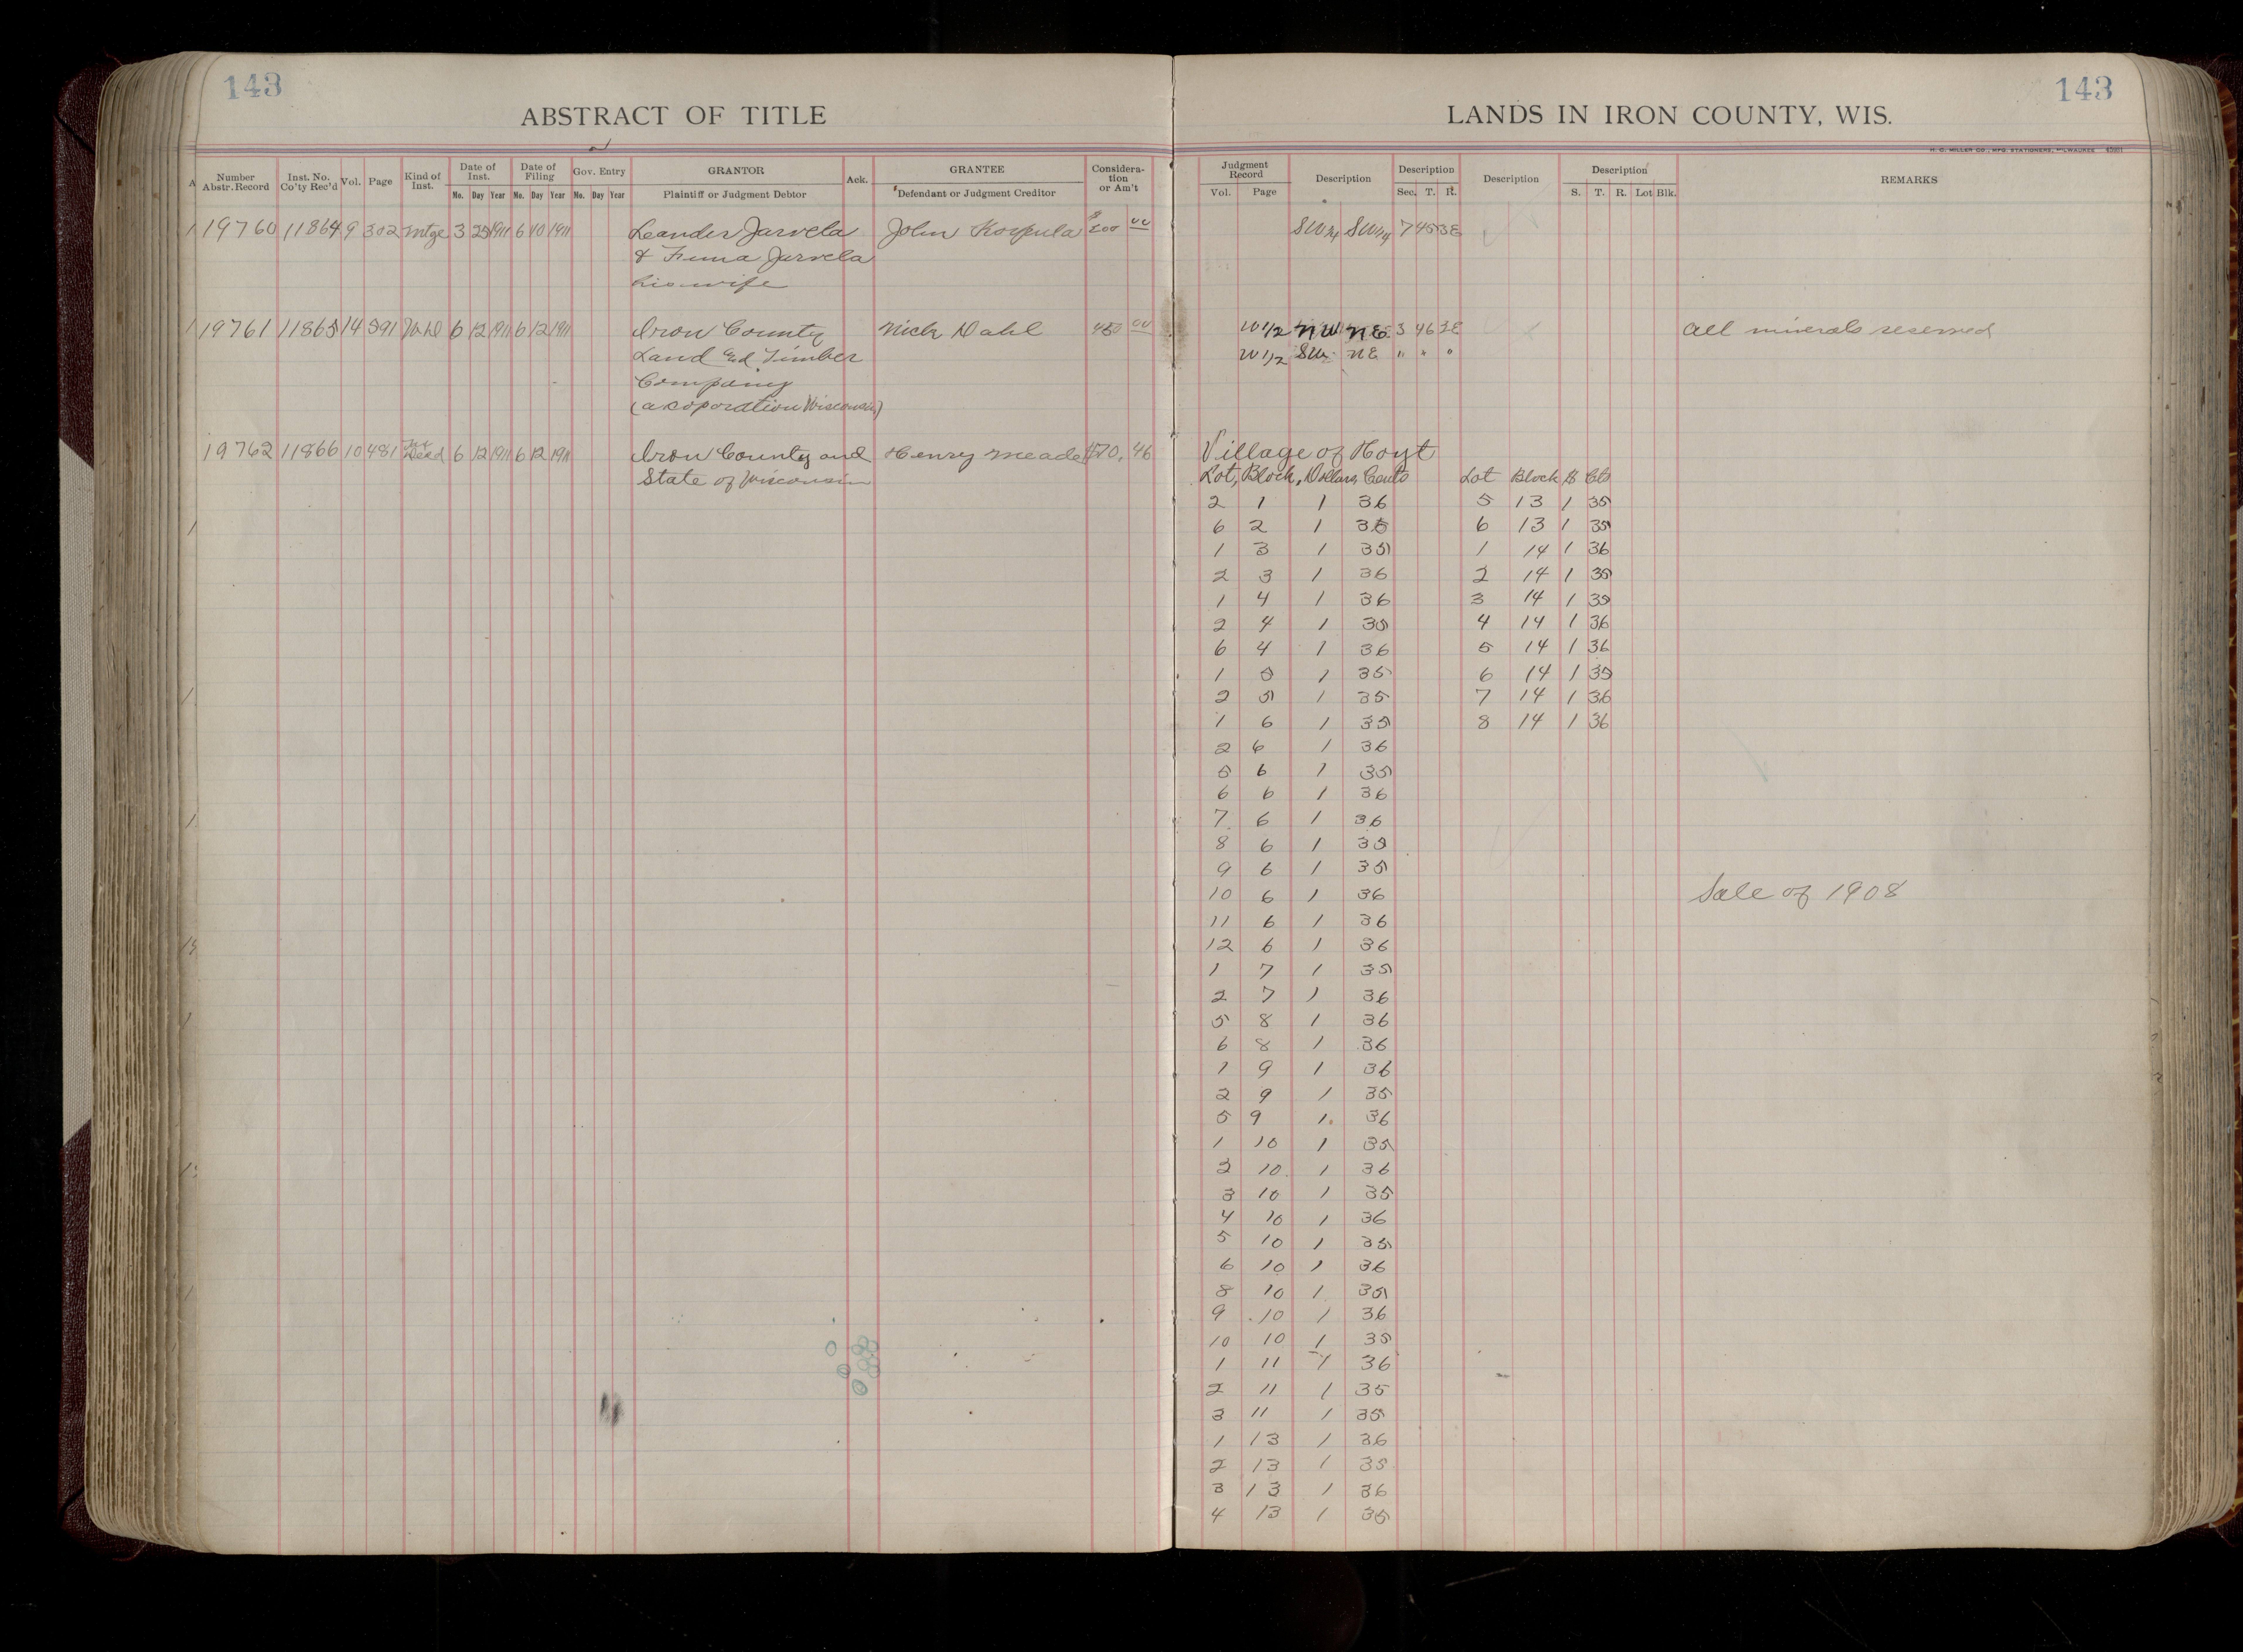 143
143
ABSTRACT OF TITLE
LANDS IN IRON COUNTY, WIS.
H. C. MILLER CO., MFG. STATIONERS, MILWAUKEE
Number Abstr. Record
Inst. No. Co'ty Rec'd
Vol.
Page
Kind of Inst.
Date of Inst.
Mo. Day Year
Date of Filing
Mo. Day Year
Gov. Entry
Mo. Day Year
GRANTOR
Plaintiff or Judgment Debtor
Ack.
GRANTEE
Defendant or Judgment Creditor
Considera-
tion
or Am't
Judgment Record
Vol. Page
Description
Description
Sec. T. R.
Description
Description
S. T. R. Lot Blk.
REMARKS
19760 11864 9 302 Mtge 3 25 1911 6 10 1911 Leander Jarvela John 200 00 SW1/4 SW1/4 7 45 3E
& Fiina Jarvela
his wife
19761 11865 14 591 Wd 6 12 1911 6 12 1911 Iron County Nick Dahl 450 00 W1/2 NW NE 3 46 2E All minerals reserved
Land and Timber W1/2 SW NE " " "
Company
(a coporation Wisconsin)
19762 11866 10 481 Tax Deed 6 12 1911 6 12 1911 Iron County and Henry Meade $70.46 Village of Hoyt
State of Wisconsin Lot, Block, Dollars, Cents Lot Block $ Cts
2 1 1 36 5 13 1 35
6 2 1 36 6 13 1 35
1 3 1 35 1 14 1 36
2 3 1 36 2 14 1 35
1 4 1 36 3 14 1 35
2 4 1 35 4 14 1 36
6 4 1 36 5 14 1 36
1 5 1 35 6 14 1 35
2 5 1 35 7 14 1 36
1 6 1 35 8 14 1 36
2 6 1 36
5 6 1 35
6 6 1 36
7 6 1 36
8 6 1 35
9 6 1 35
10 6 1 36 Sale of 1908
11 6 1 36
12 6 1 36
1 7 1 35
2 7 1 36
5 8 1 36
6 8 1 36
1 9 1 36
2 9 1 35
5 9 1 36
1 10 1 35
2 10 1 36
3 10 1 35
4 10 1 36
5 10 1 35
6 10 1 36
8 10 1 35
9 10 1 36
10 10 1 35
1 11 1 36
2 11 1 35
3 11 1 35
1 13 1 36
2 13 1 35
3 13 1 36
4 13 1 35